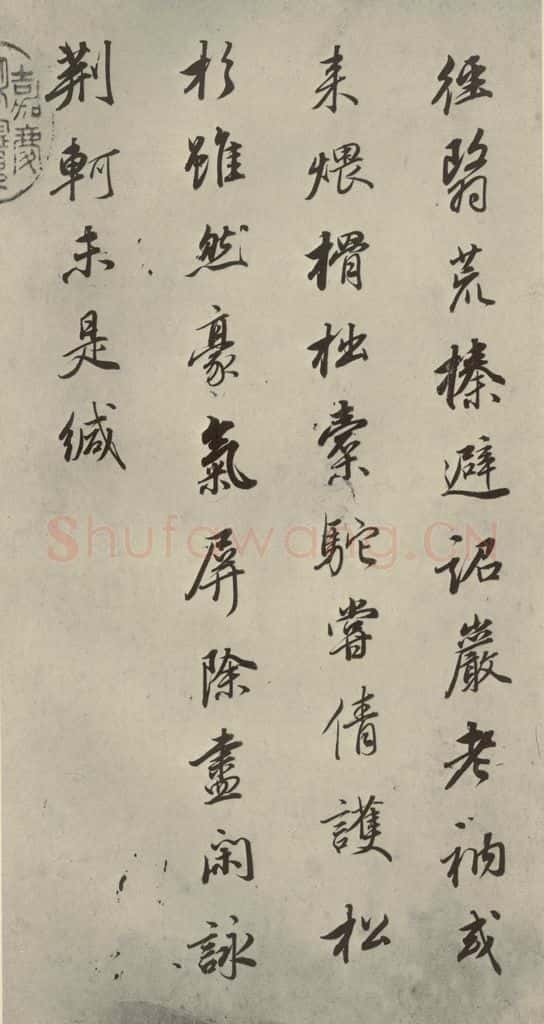 徑翳荒榛避詔巖老衲或
来煨榾柮橐駝嘗倩護松
杉雖然豪氣屏除盡閑詠
荊軻未是緘
嘉慶
Shufawang.CN